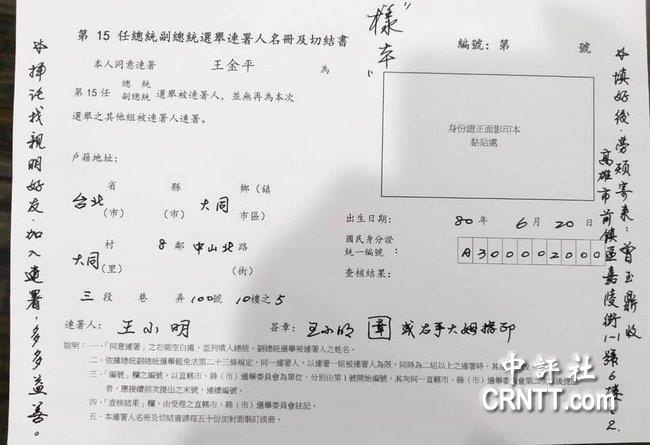 第 15 任總統副總統選舉連署人名冊及切結書
"樣本"
編號：第 號
本人同意連署 王金平 為
第15任 總統 副總統 選舉被連署人，並無再為本次
選舉之其他組被連署人連署。
身份證正面影印本
黏貼處
戶籍地址：
台北 省(市) 縣(市) 大同 鄉(鎮市區)
大同 村(里) 8 鄰 中山北 路(街)
三 段 巷 弄 100號 10樓之5
出生日期： 80 年 6 月 20 日
國民身分證
統一編號： A300002000
查核結果：
連署人： 王小明 簽章： 王小明 章 或右手大姆指印
說明：一、「同意連署」之右側空白處，並列填入總統、副總統選舉被連署人之姓名。
二、依據總統副總統選舉罷免法第二十三條規定，同一連署人，以連署一組被連署人為限，同時為二組以上之連署時，其
三、「編號」欄之編號，以直轄市、縣（市）選舉委員會為單位，分別由第1號開始編號，其向同一直轄市、縣（市）選舉委員會第二次以後提
者，應接續前次提出之末號，連續編號。
四、「查核結果」欄，由受理之直轄市、縣（市）選舉委員會註記。
五、本連署人名冊及切結書請每五十份加封面裝訂成冊。
※拜託找親朋好友．加入連署，多多益善。
※填好後．勞煩寄來：曾玉鼎收
高雄市前鎮區嘉陵街1-1號6樓之2
中評社
CRNTT.com